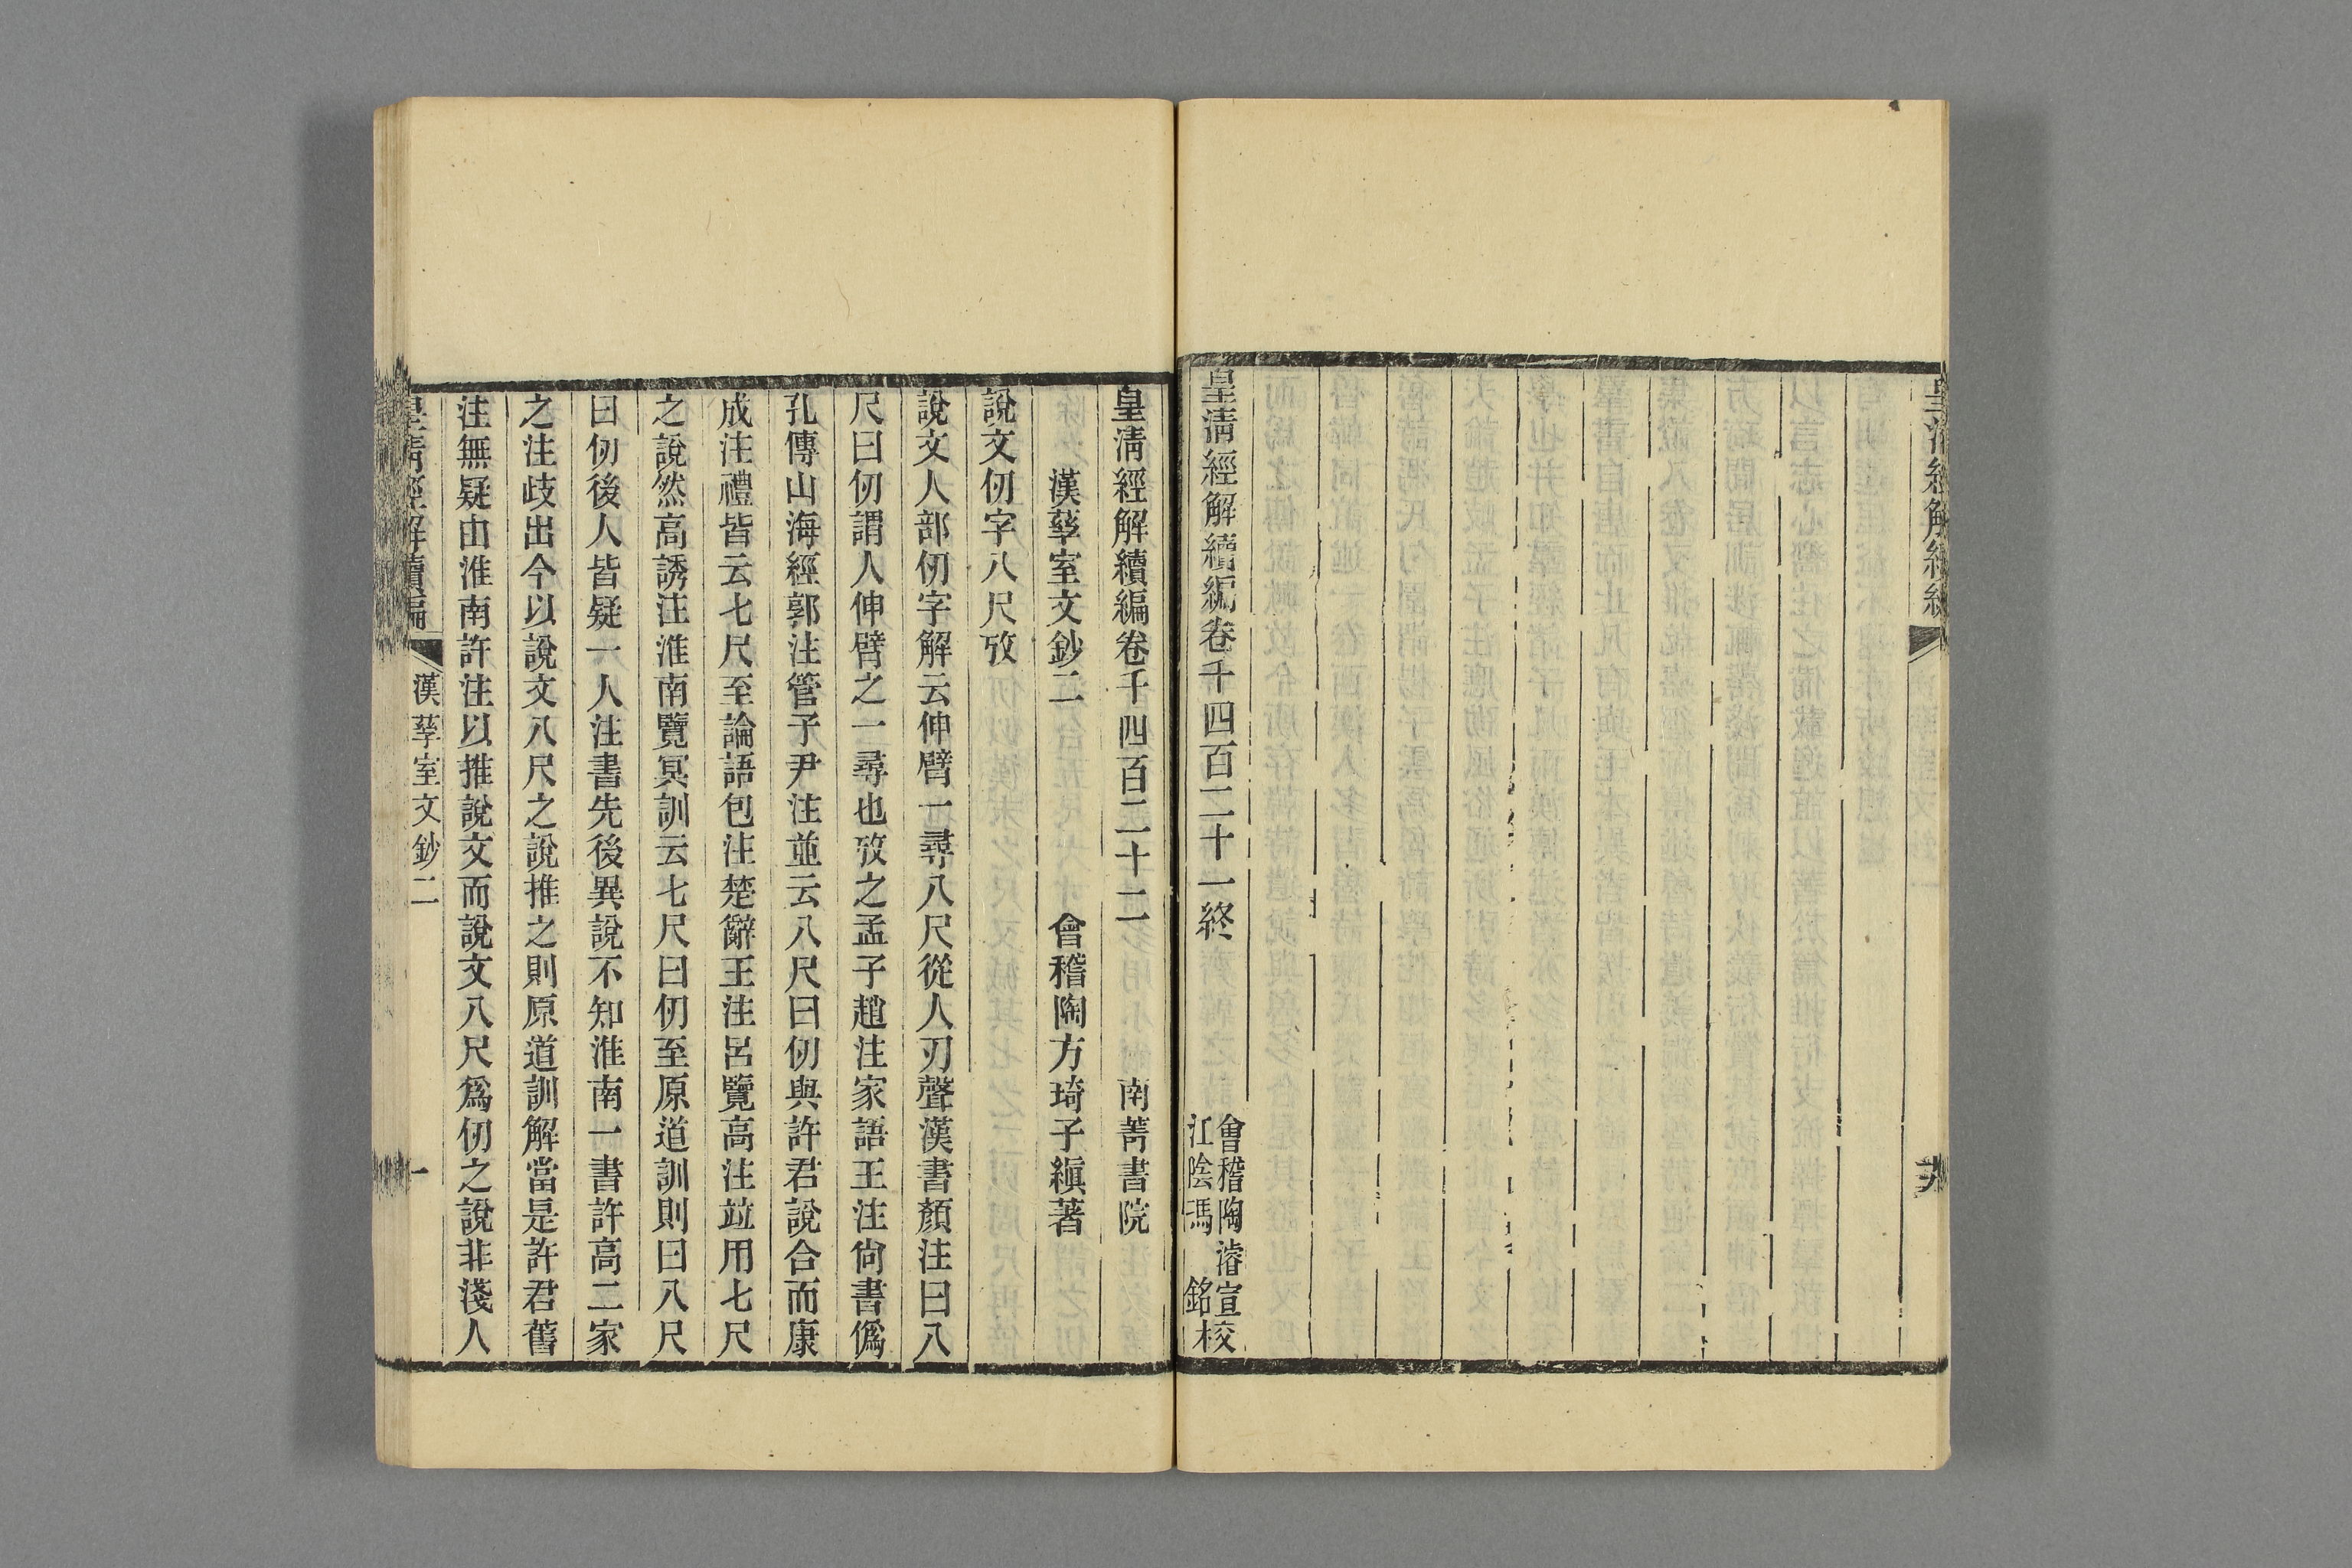 皇清經解續編
皇清經解續編卷千四百二十一終
會稽陶濬宣校
江陰馮銘校
皇清經解續編卷千四百二十二 南菁書院
漢孳室文鈔二 會稽陶方琦子縝著
說文仞字八尺攷
說文人部仞字解云伸臂一尋八尺從人刃聲漢書顏注曰八
尺曰仞謂人伸臂之一尋也攷之孟子趙注家語王注尙書僞
孔傳山海經郭注管子尹注並云八尺曰仞與許君說合而康
成注禮皆云七尺至論語包注楚辭王注呂覽高注竝用七尺
之說然高誘注淮南覽冥訓云七尺曰仞至原道訓則曰八尺
曰仞後人皆疑一人注書先後異說不知淮南一書許高二家
之注歧出今以說文八尺之說推之則原道訓解當是許君舊
注無疑由淮南許注以推說文而說文八尺爲仞之說非淺人
皇清經解續編 漢孳室文鈔二 一